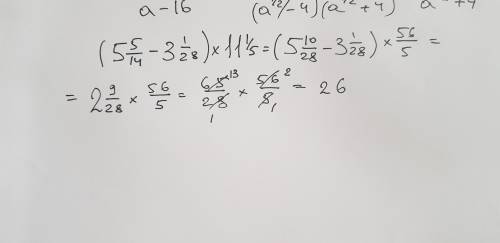 a-16 (a^1/2-4)(a^1/2+4) a
(5 5/14 - 3 1/28) × 11 1/5 = (5 10/28 - 3 1/28) × 56/5 =
= 2 9/28 × 56/5 = 65 13/28 1 × 56 2/5 1 = 26